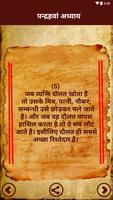 पन्द्रहवां अध्याय
(5)
जब व्यक्ति दौलत खोता है
तो उसके मित्र, पत्नी, नौकर,
सम्बन्धी उसे छोडकर चले जाते
है। और जब वह दौलत वापस
हासिल करता है तो ये सब लौट
आते है। इसीलिए दौलत ही सबसे
अच्छा रिश्तेदार है।